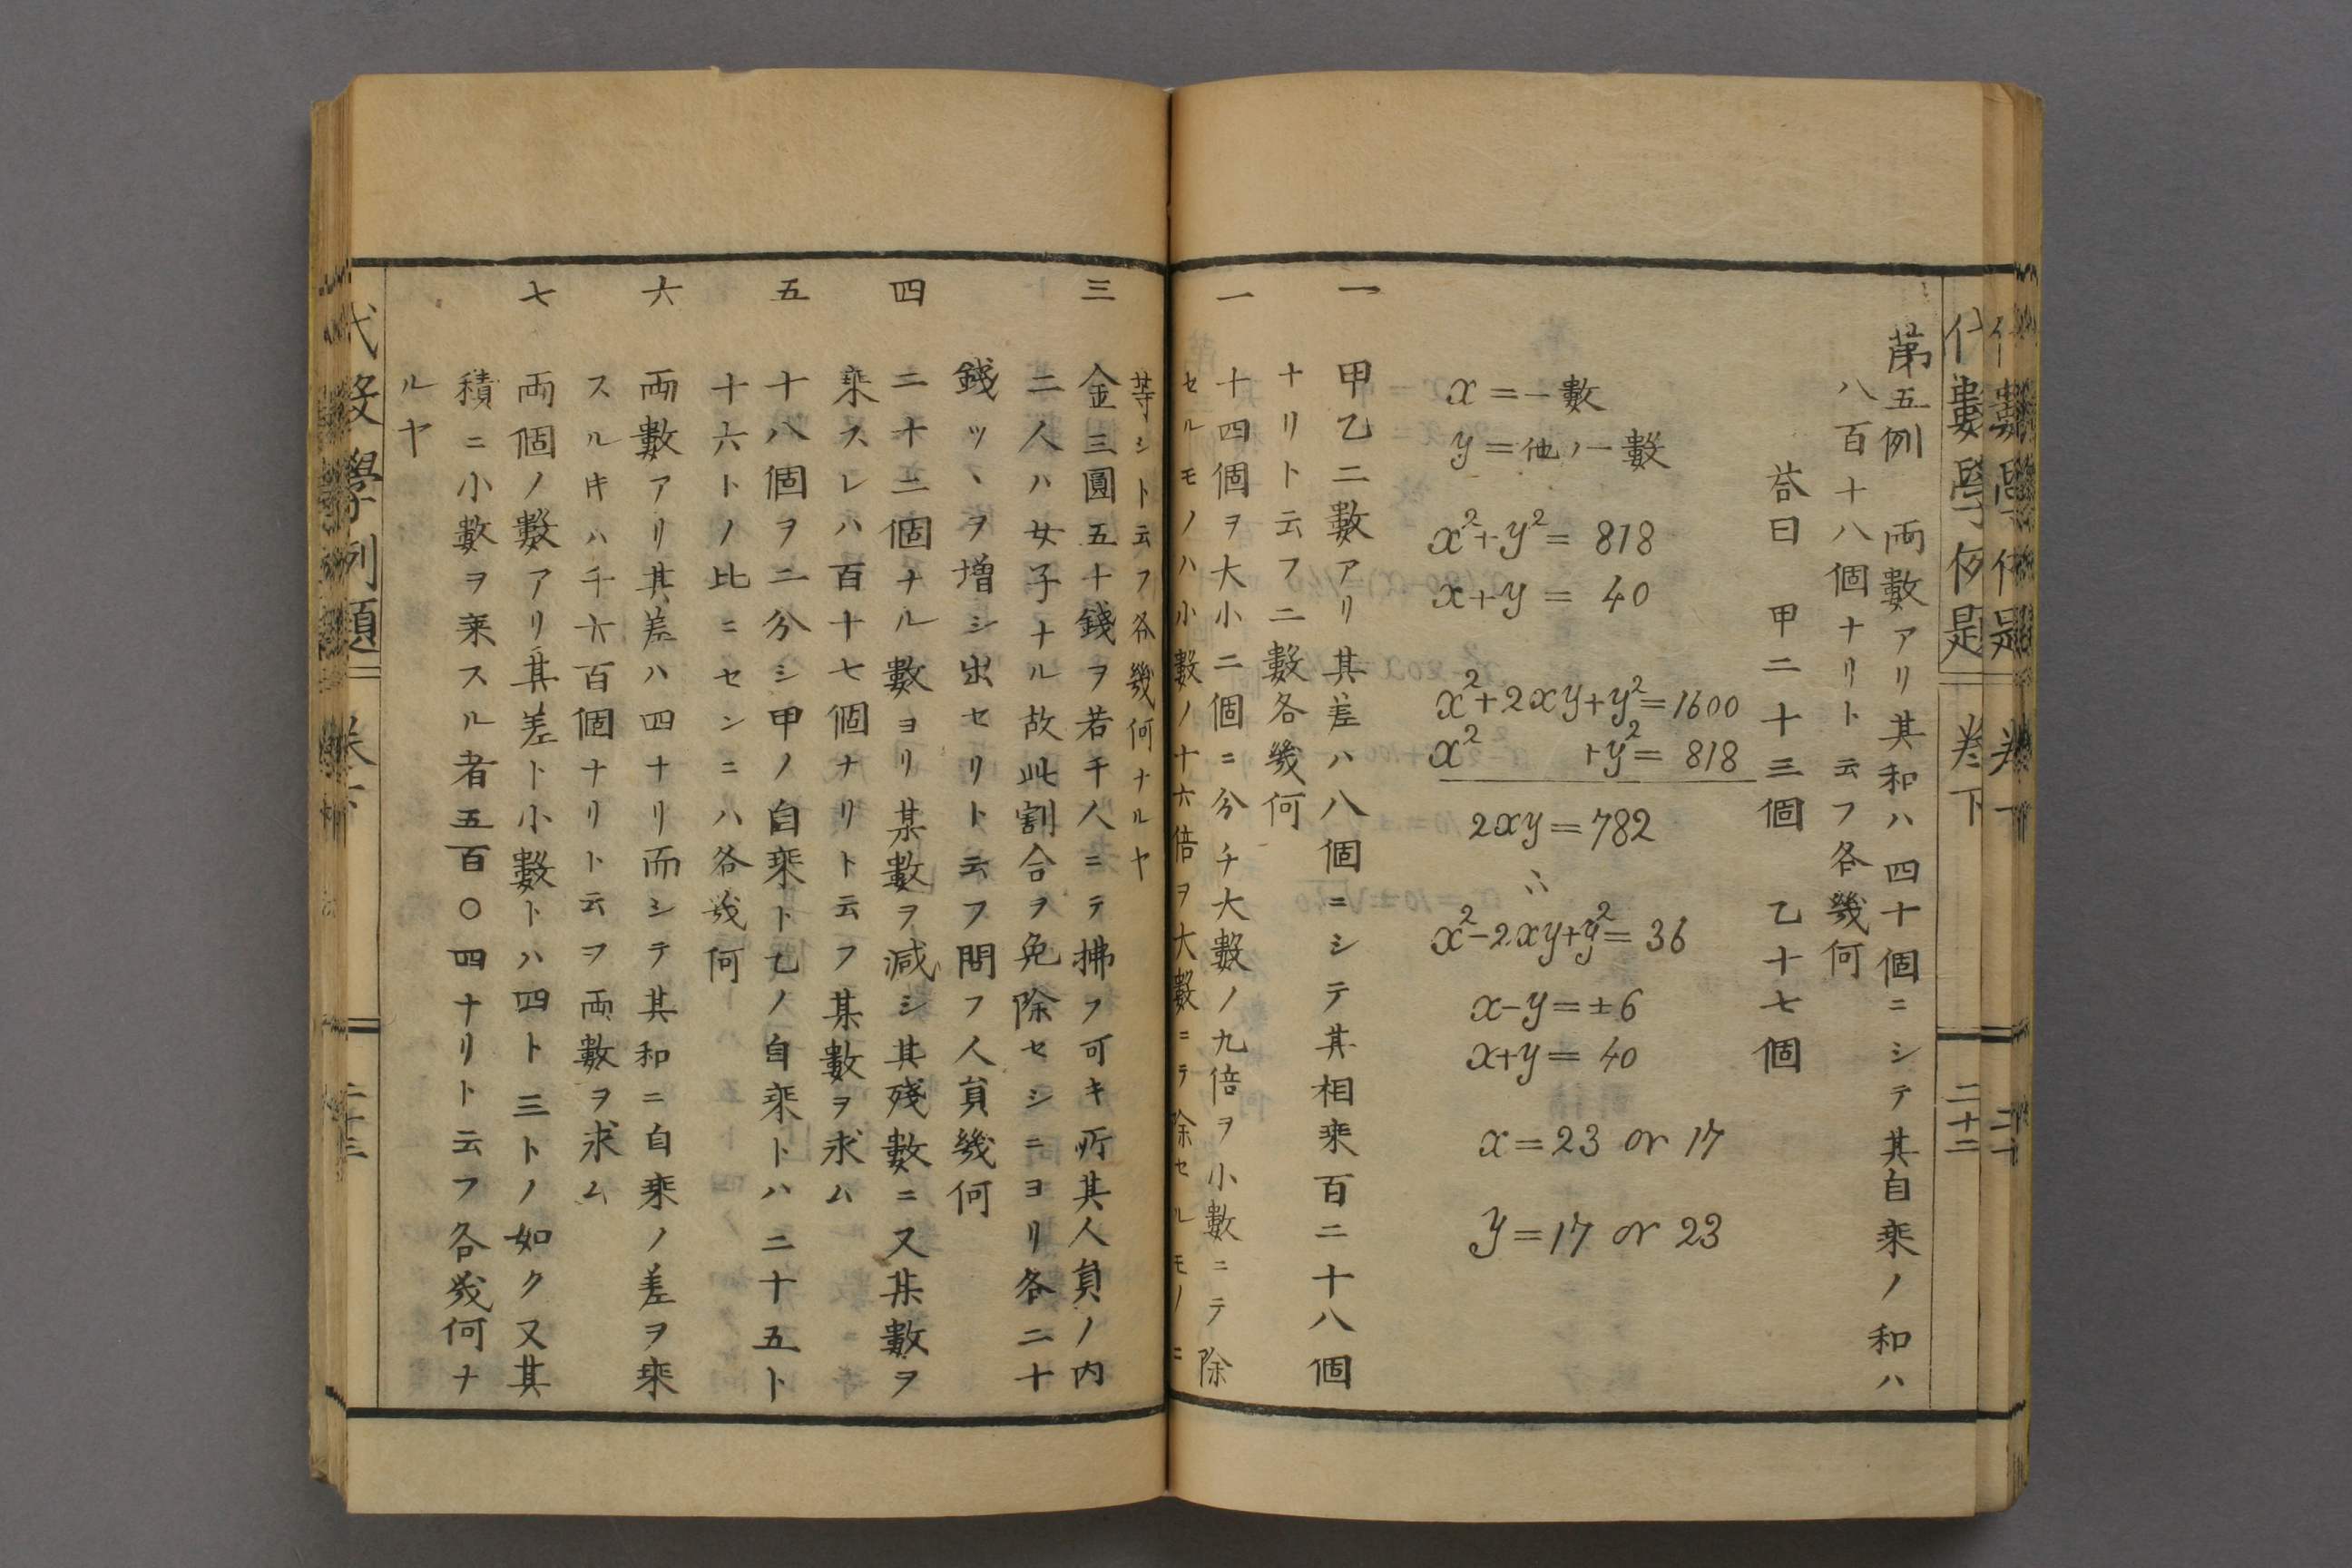 代數學例題 巻下 二十二
第五例 両數アリ其和ハ四十個ニシテ其自乘ノ和ハ
八百十八個ナリト云フ各幾何
答曰 甲二十三個 乙十七個
x=一數
y=他ノ一數
x²+y²= 818
x+y = 40
x²+2xy+y²=1600
x² +y²= 818
2xy=782
∴
x²-2xy+y²= 36
x-y=±6
x+y= 40
x=23 or 17
y=17 or 23
一 甲乙二數アリ其差ハ八個ニシテ其相乘百二十八個
ナリト云フ二數各幾何
一 十四個ヲ大小二個ニ分チ大數ノ九倍ヲ小數ニテ除
セルモノハ小數ノ十六倍ヲ大數ニテ除セルモノニ
等シト云フ各幾何ナルヤ
三 金三圓五十錢ヲ若干人ニテ拂フ可キ所其人負ノ内
二人ハ女子ナル故此割合ヲ免除セシニヨリ各二十
錢ツヽヲ増シ出セリト云フ問フ人負幾何
四 二十二個ナル數ヨリ某數ヲ減シ其殘數ニ又某數ヲ
乘スレハ百十七個ナリト云フ某數ヲ求ム
五 十八個ヲ二分シ甲ノ自乘ト乙ノ自乘トハ二十五ト
十六トノ比ニセンニハ各幾何
六 両數アリ其差ハ四ナリ而シテ其和ニ自乘ノ差ヲ乘
スルキハ千六百個ナリト云ヲ両數ヲ求ム
七 両個ノ數アリ其差ト小數トハ四ト三トノ如ク又其
積ニ小數ヲ乘スル者五百〇四ナリト云フ各幾何ナ
ルヤ
代數學例題 巻下 二十三